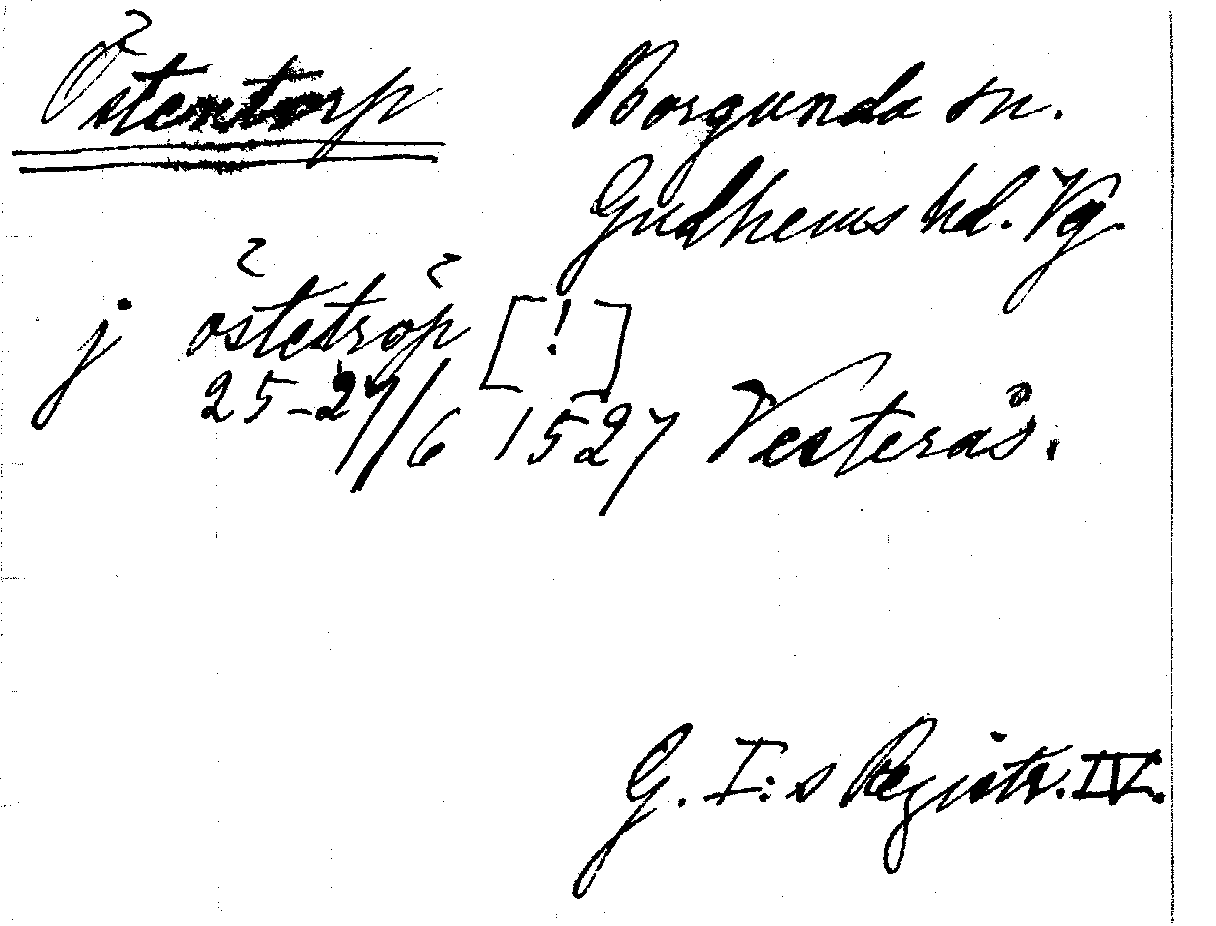 Östentorp Borgunda sn.
Gudhems hd. Vg.
j östetröp [!]
25-27/6 1527 Vesterås.
G. I:s Registr. IV.